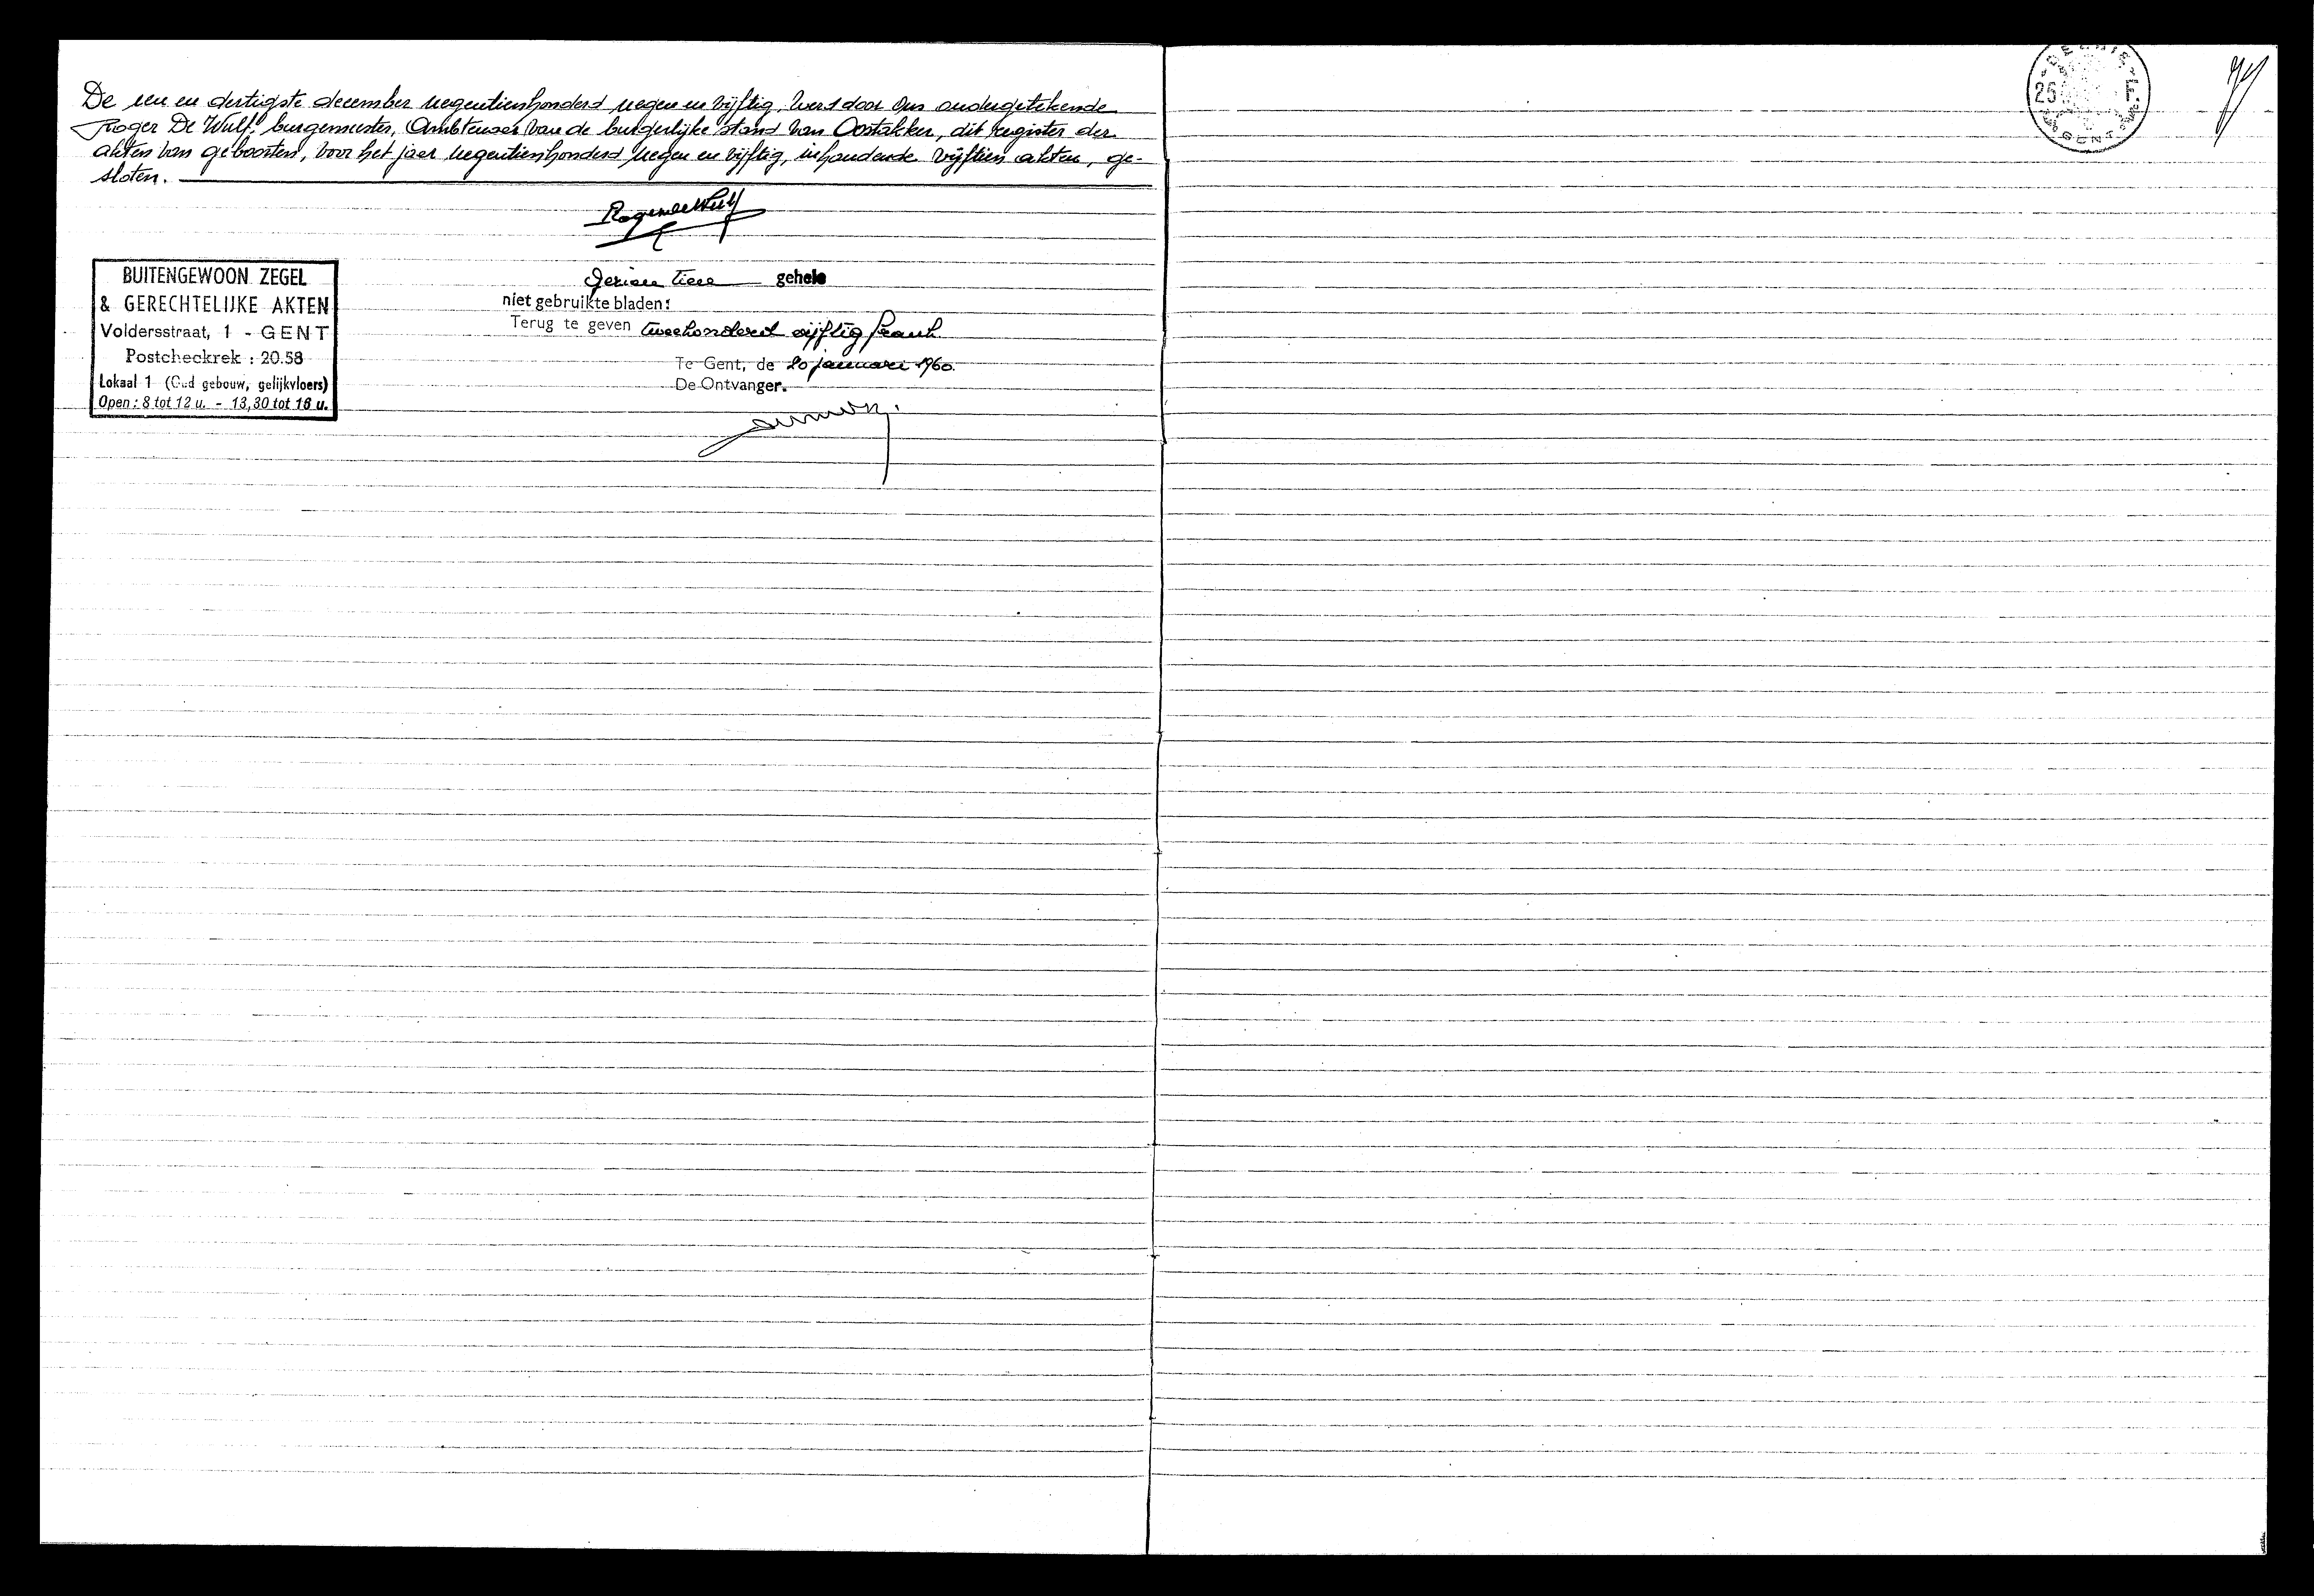 De een en dertigste december negentienhonderd negen en vijftig, werd door Ons ondergetekende
Roger De Wulf, burgemeester, Ambtenaar van de burgerlijke stand van Oostakker, dit register der
akten van geboorten, voor het jaar negentienhonderd negen en vijftig, inhoudende vijftien akten, ge-
sloten.
Roger De Wulf
BUITENGEWOON ZEGEL
& GERECHTELIJKE AKTEN
Voldersstraat, 1 - GENT
Postcheckrek : 20.58
Lokaal 1 (Oud gebouw, gelijkvloers)
Open : 8 tot 12 u. - 13,30 tot 16 u.
tien gehele
niet gebruikte bladen:
Terug te geven tweehonderd vijftig frank
Te Gent, de 20 januari 1960.
De Ontvanger.
25 F.
GENT